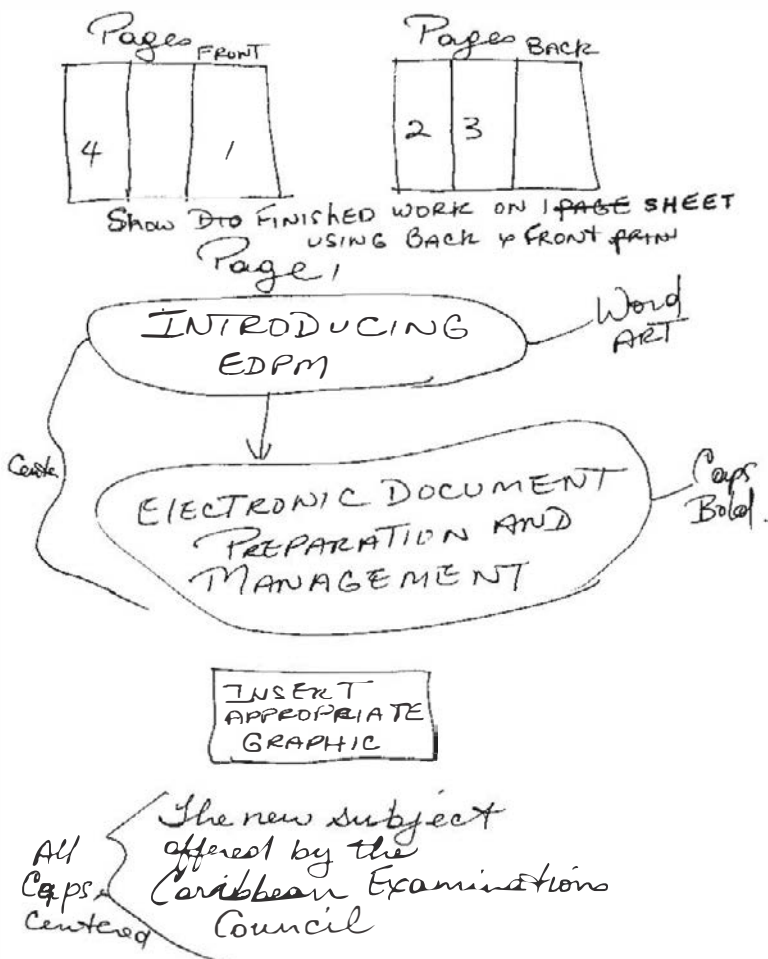 Pages FRONT
Pages BACK
4 1
2 3
Show FINISHED WORK ON 1 PAGE SHEET
USING BACK & FRONT
Page 1
INTRODUCING
EDPM
Word
ART
Centre
ELECTRONIC DOCUMENT
PREPARATION AND
MANAGEMENT
Caps
Bold.
INSERT
APPROPRIATE
GRAPHIC
The new subject
offered by the
Caribbean Examinations
Council
All
Caps,
Centered